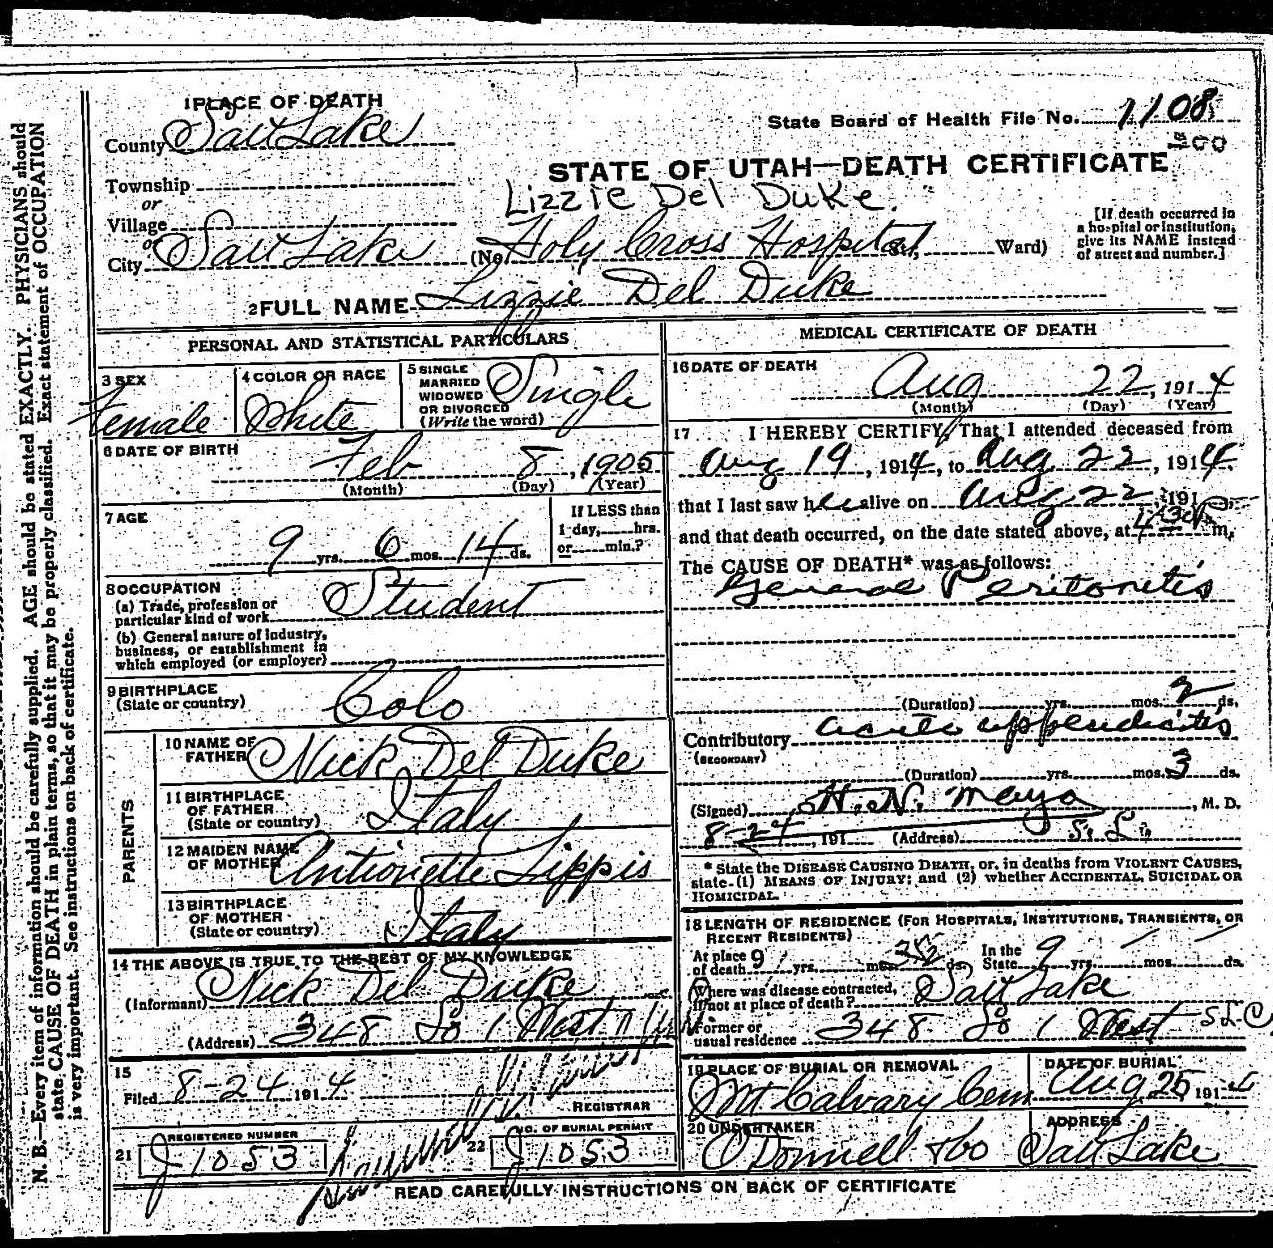 1 PLACE OF DEATH
County Salt Lake
State Board of Health File No. 1108
STATE OF UTAH—DEATH CERTIFICATE
Township
or
Village
or
City Salt Lake (No. Holy Cross Hospital St, Ward)
Lizzie Del Duke
[If death occurred in a hospital or institution, give its NAME instead of street and number.]
2 FULL NAME Lizzie Del Duke
PERSONAL AND STATISTICAL PARTICULARS
3 SEX Female
4 COLOR OR RACE White
5 SINGLE MARRIED WIDOWED OR DIVORCED (Write the word) Single
6 DATE OF BIRTH Feb 8, 1905
(Month) (Day) (Year)
7 AGE 9 yrs. 6 mos. 14 ds.
If LESS than 1 day, hrs. or min.?
8 OCCUPATION
(a) Trade, profession or particular kind of work Student
(b) General nature of industry, business, or establishment in which employed (or employer)
9 BIRTHPLACE (State or country) Colo
PARENTS
10 NAME OF FATHER Nick Del Duke
11 BIRTHPLACE OF FATHER (State or country) Italy
12 MAIDEN NAME OF MOTHER Antionette Lippis
13 BIRTHPLACE OF MOTHER (State or country) Italy
14 THE ABOVE IS TRUE TO THE BEST OF MY KNOWLEDGE
(Informant) Nick Del Duke
(Address) 348 So 1 West
15
Filed 8-24 1914
REGISTRAR
21 REGISTERED NUMBER J1053
22 NO. OF BURIAL PERMIT J1053
MEDICAL CERTIFICATE OF DEATH
16 DATE OF DEATH Aug 22, 1914
(Month) (Day) (Year)
17 I HEREBY CERTIFY, That I attended deceased from
Aug 19, 1914, to Aug 22, 1914
that I last saw her alive on Aug 22 191
and that death occurred, on the date stated above, at 4:30 P m,
The CAUSE OF DEATH* was as follows:
General Peritonitis
(Duration) yrs. mos. 2 ds.
Contributory acute appendicitis
(SECONDARY)
(Duration) yrs. mos. 3 ds.
(Signed) H. N. Mayo, M. D.
8-24, 191 (Address) S. L.
* State the DISEASE CAUSING DEATH, or, in deaths from VIOLENT CAUSES, state (1) MEANS OF INJURY; and (2) whether ACCIDENTAL, SUICIDAL OR HOMICIDAL.
18 LENGTH OF RESIDENCE (FOR HOSPITALS, INSTITUTIONS, TRANSIENTS, OR RECENT RESIDENTS)
At place of death 9 yrs. mos. ds. In the State 9 yrs. mos. ds.
Where was disease contracted, if not at place of death? Salt Lake
Former or usual residence 348 So 1 West S L C
19 PLACE OF BURIAL OR REMOVAL Mt Calvary Cem
DATE OF BURIAL Aug 25 1914
20 UNDERTAKER O'Donnell & Co
ADDRESS Salt Lake
READ CAREFULLY INSTRUCTIONS ON BACK OF CERTIFICATE
N. B.—Every item of information should be carefully supplied. AGE should be stated EXACTLY. PHYSICIANS should
state CAUSE OF DEATH in plain terms, so that it may be properly classified. Exact statement of OCCUPATION
is very important. See instructions on back of certificate.